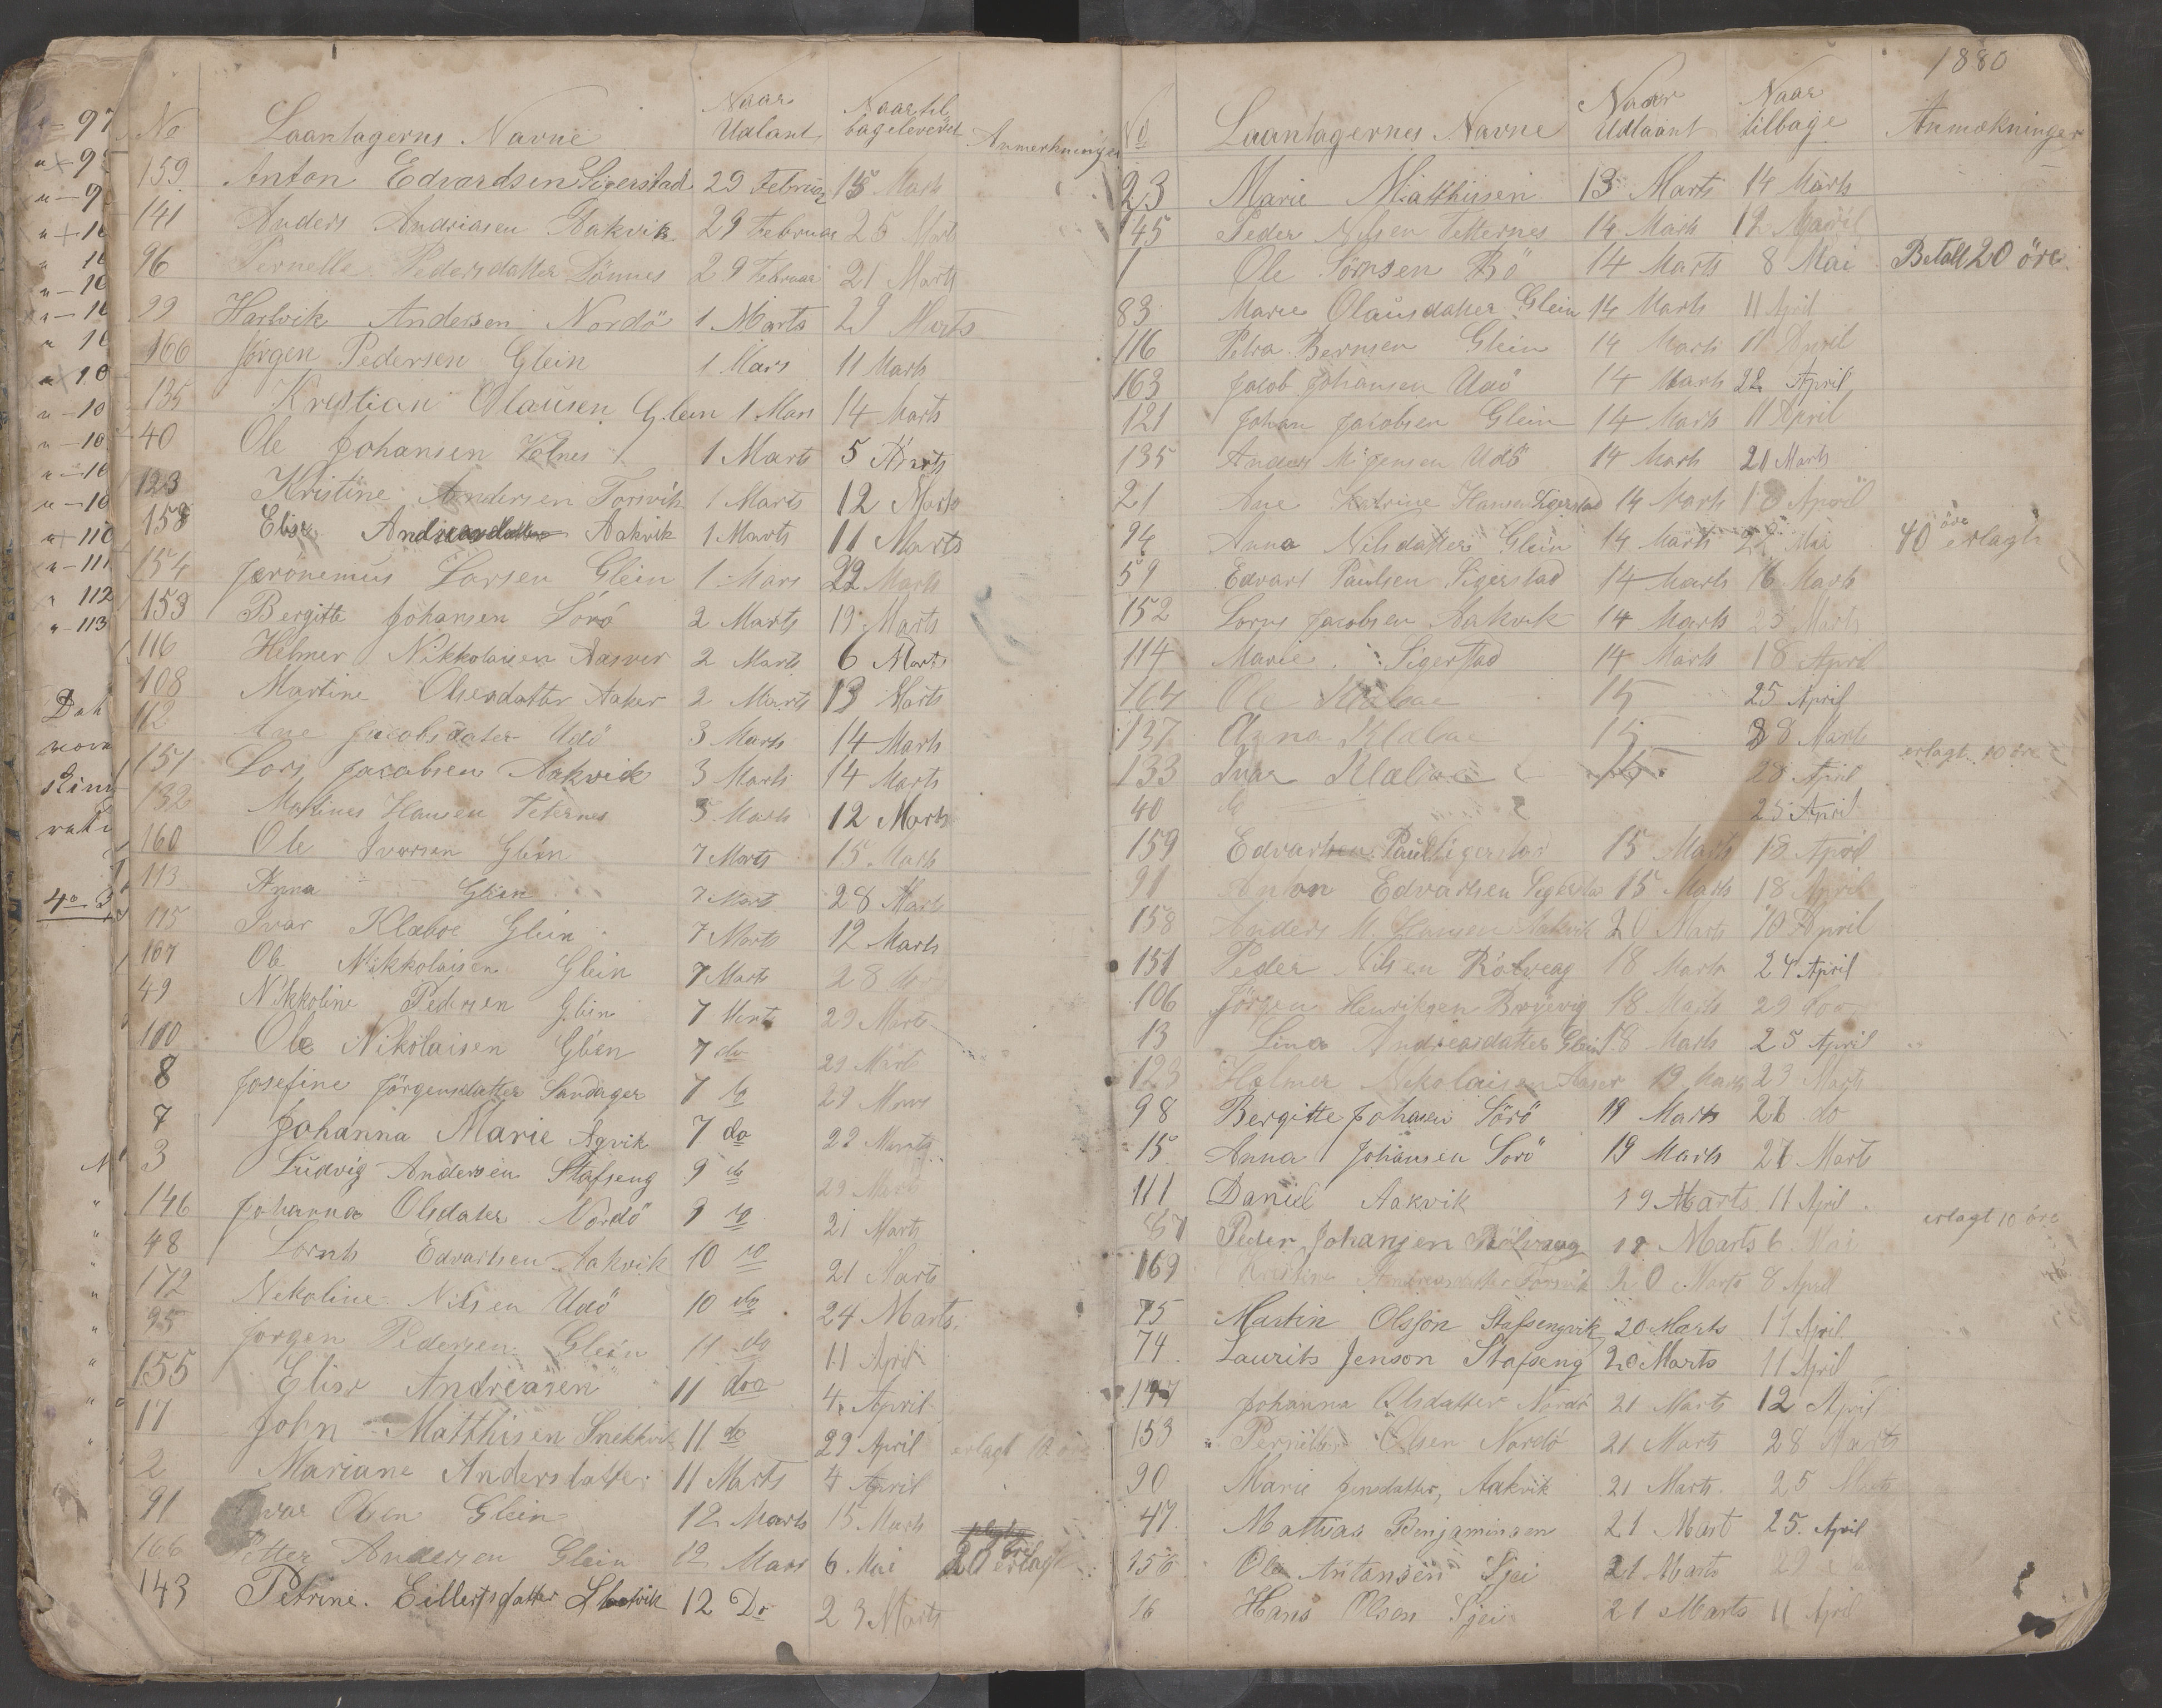 No Laantagerns Navne Naar Udlant Naar til bageleveret Anmerkninger
159 Anton Edvardsen Sigerstad 29 Februar 15 Marts
141 Anders Andriasen Aakvik 29 Februar 25 Marts
96 Pernelle Pedersdatter Sönnes 29 Februar 21 Marts
99 Hartvik Andersen Nordö 1 Marts 29 Marts
106 Jörgen Pedersen Glein 1 Mars 11 Marts
135 Kristian Olausen Glein 1 Mars 14 Marts
40 Ole Johansen Volnes 1 Marts 5 Marts
123 Kristine Andersen Forsvik 1 Marts 12 Marts
158 Elise Aakvik 1 Marts 11 Marts
154 Jerönemus Larsen Glein 1 Mars 22 Marts
153 Bergitte Johansen Sörö 2 Marts 19 Marts
116 Helmer Nikkolaisen Aasver 2 Marts 6 Marts
108 Martine Olsendatter Aaker 2 Marts 13 Marts
112 Ane Jacobsdater Udö 3 Marts 14 Marts
151 Lors Jacobsen Aakvik 3 Marts 14 Marts
132 Martines Hansen Teternes 5 Marts 12 Marts
160 Ole Iversen Glein 7 Marts 15 Marts
113 Anna Glein 7 Mart 28 Mart
115 Ivar Klæboe Glein 7 Marts 12 Marts
107 Ole Nikkolaisen Glein 7 Marts 28 do
49 Nikkoline Pedersen Glein 7 Marts 29 Marts
100 Ole Nikolaisen Glein 7 do 29 Marts
8 Josefine Jörgensdatter Sandager 7 do 29 Mars
7 Johanna Marie Agvik 7 do 22 Marts
3 Ludvig Andersen Stafseng 9 do 29 Marts
146 Johanna Olsdater Nordö 9 do 21 Marts
48 Lornts Edvartsen Aakvik 10 do 21 Marts
172 Nekoline Nilsen Udö 10 do 24 Marts
95 Jorgen Pedersen Glein 11 do 11 April
155 Elise Andreasen 11 doo 4 April
17 John Matthisen Snekkvik 11 do 29 April erlagt 10 öre
2 Mariane Andersdatter 11 Marts 4 April
91 Ivar Olsen Glein 12 Marts 15 Marts
166 Petter Andersen Glein 12 Mars 6 Mai 20 öre erlagt
143 Petrine Eillertsdatter 12 Do 23 Marts
1880
No Laantagernes Navne Naar Udlaant Naar tilbage Anmærkninger
23 Marie Matthisen 13 Marts 14 Marts
145 Peder Nilsen Tetternes 14 Marts 12 April
1 Ole Sörnsen Bö 14 Marts 8 Mai Betalt 20 öre
83 Marie Olausdatter Glein 14 Marts 11 April
116 Petra Bernsen Glein 14 Marts 11 April
163 Jacob Johansen Udö 14 Marts 22 April
121 Johan Jacobsen Glein 14 Marts 11 April
135 Anders Mogensen Udö 14 Marts 21 Marts
21 Ane Katrine Hansen Sigerstad 14 Marts 18 April
94 Anna Nilsdatter Glein 14 Marts 22 Mai 40 öre erlagt
59 Edvart Paulsen Sigerstad 14 Marts 16 Marts
152 Lorns Jacobsen Aakvik 14 Marts 25 Marts
114 Marie Sigerstad 14 Marts 18 April
164 Ole Klæboe 15 25 April
137 Anna Klæboe 15 28 Marts
133 Ivar Klæboe 15 28 April erlagt 10 öre
40 do 25 April
159 Edvartsen Paul Sigerstad 15 Marts 18 April
91 Anton Edvartsen Sigerstad 15 Marts 18 April
158 Anders M. Hansen Aakvik 20 Marts 10 April
151 Peder Nilsen Rölvaag 18 Marts 24 April
106 Jörgen Henriksen Brevig 18 Marts 29 doo
13 Lina Andreasdatter Glein 18 Marts 25 April
123 Helmer Nekolaisen Aasver 19 Marts 23 Marts
98 Bergitte Johansen Sörö 19 Marts 21 do
15 Anna Johansen Sörö 19 Marts 21 Marts
111 Daniel Aakvik 19 Marts 11 April
67 Peder Johansen Rölvaag 19 Marts 6 Mai erlagt 10 öre
169 Kristine Andreasdatter Forsvik 20 Marts 8 April
75 Martin Olsson Stafsengvik 20 Marts 11 April
74 Laurits Jenson Stafseng 20 Marts 11 April
147 Johanna Olsdatter Nordö 21 Marts 12 April
153 Pernille Olsen Nordö 21 Marts 28 Marts
90 Marie Jensdatter Aakvik 21 Marts 25 Marts
47 Mathias Benjaminsen 21 Mart 25 April
156 Ole Antonsen Sjei 21 Marts
16 Hans Olsen Sjei 21 Marts 11 April